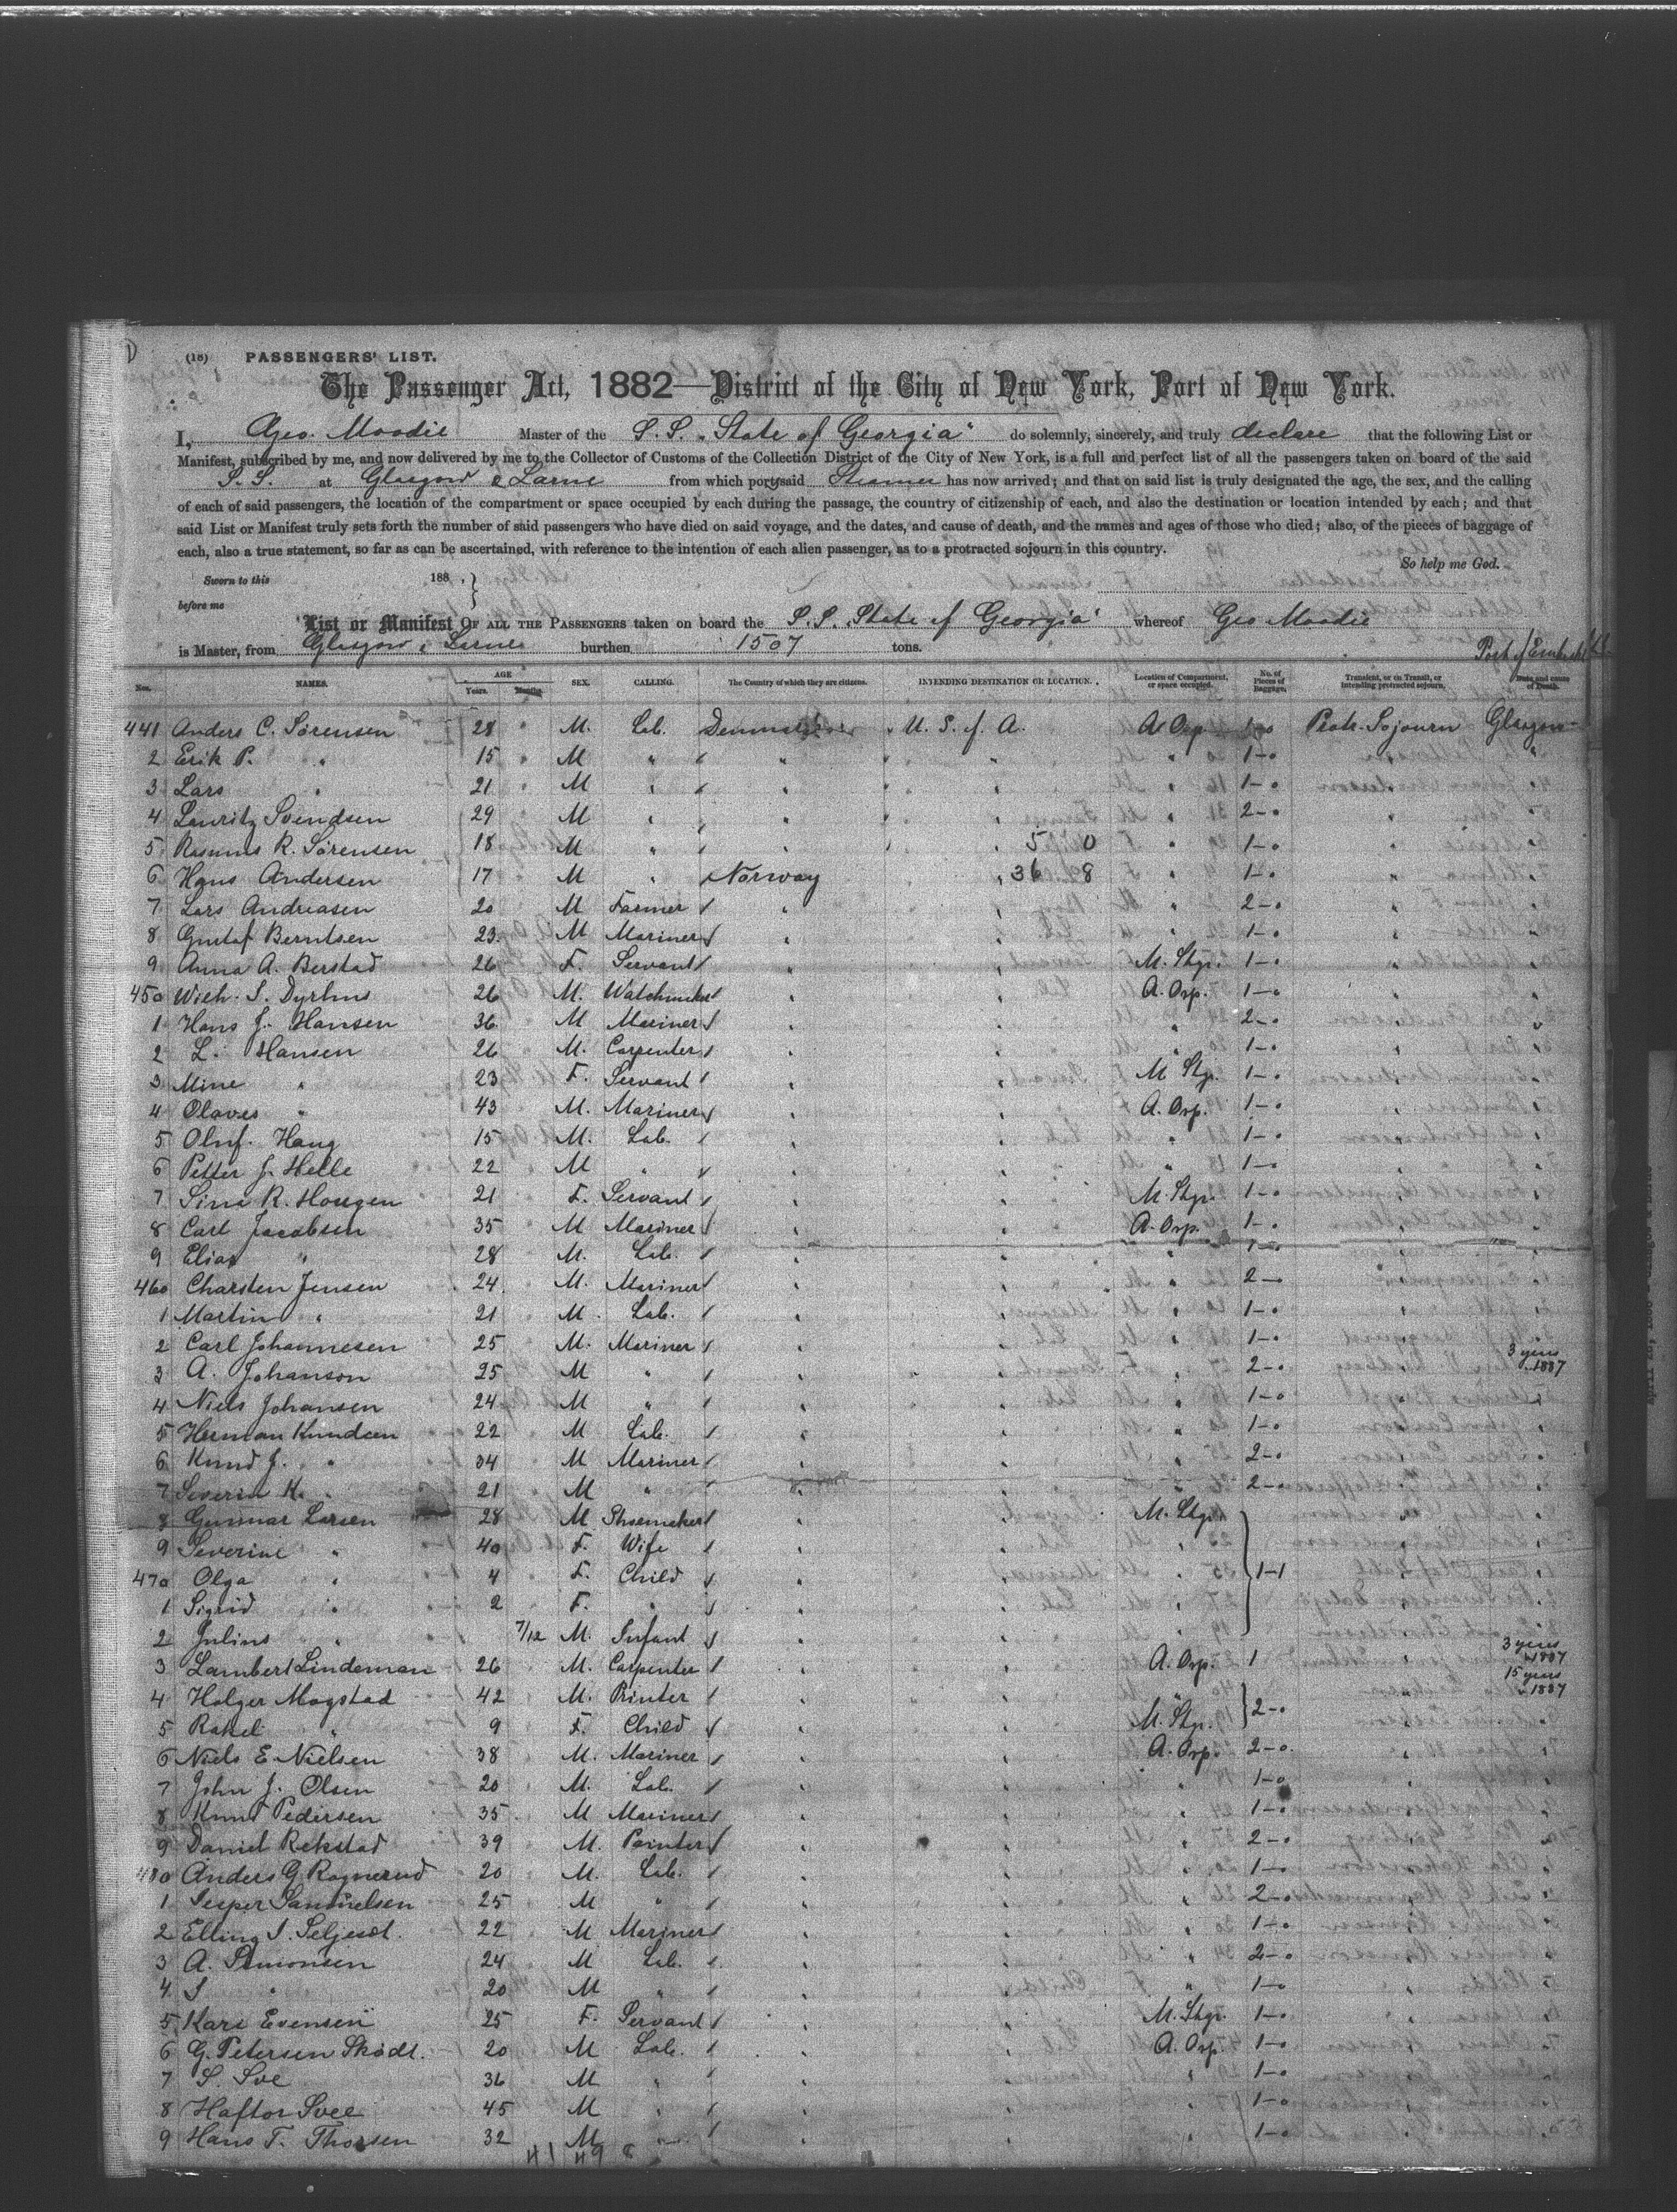 (18) PASSENGERS' LIST.
The Passenger Act, 1882—District of the City of New York, Port of New York.
I, Geo. Moodie Master of the S.S. "State of Georgia" do solemnly, sincerely, and truly declare that the following List or
Manifest, subscribed by me, and now delivered by me to the Collector of Customs of the Collection District of the City of New York, is a full and perfect list of all the passengers taken on board of the said
S.S. at Glasgow & Larne from which port said Steamer has now arrived; and that on said list is truly designated the age, the sex, and the calling
of each of said passengers, the location of the compartment or space occupied by each during the passage, the country of citizenship of each, and also the destination or location intended by each; and that
said List or Manifest truly sets forth the number of said passengers who have died on said voyage, and the dates, and cause of death, and the names and ages of those who died; also, of the pieces of baggage of
each, also a true statement, so far as can be ascertained, with reference to the intention of each alien passenger, as to a protracted sojourn in this country.
So help me God.
Sworn to this 188 . }
before me
List or Manifest OF ALL THE PASSENGERS taken on board the S.S. "State of Georgia" whereof Geo Moodie
is Master, from Glasgow & Larne burthen 1507 tons. Port of
Nos. NAMES. AGE Years. Months. SEX. CALLING. The Country of which they are citizens. INTENDING DESTINATION OR LOCATION. Location of Compartment, or space occupied. No. of Pieces of Baggage. Transient, or in Transit, or intending protracted sojourn. Date and cause of Death.
441 Anders C. Sörensen 28 M. Lab. Denmark U. S. of A. A Orp 1-0 Protr. Sojourn Glasgow
2 Erik P. " 15 M " " " " 1-0 " "
3 Lars " 21 M " " " " 1-0 "
4 Lauritz Svendsen 29 M " " " " 2-0 "
5 Rasmus R. Sörensen 18 M " " " 5 0 " 1-0 "
6 Hans Andersen 17 M " Norway " 36 8 " 1-0 "
7 Lars Andreasen 20 M Farmer " " " 2-0 "
8 Gustaf Berntsen 23 M Mariner " " " 1-0 "
9 Anna A. Berstad 26 F. Servant " " M. Stg. 1-0 "
450 Wilh. S. Dyrhus 26 M. Watchmaker " " A. Orp. 1-0 "
1 Hans J. Hansen 36 M Mariner " " " 2-0 "
2 L. Hansen 26 M. Carpenter " " " 1-0 "
3 Mine " 23 F. Servant " " M Stg. 1-0 "
4 Olaves " 43 M. Mariner " " A. Orp. 1-0 "
5 Oluf. Haug 15 M. Lab. " " " 1-0 "
6 Petter J. Helle 22 M " " " " 1-0 "
7 Sina R. Hougen 21 F. Servant " " M. Stgr. 1-0 "
8 Carl Jacobsen 35 M Mariner " " A. Orp. 1-0 "
9 Elias " 28 M. Lab. " " " 1-0 "
460 Charsten Jensen 24 M. Mariner " " " 2-0 "
1 Martin " 21 M. Lab. " " " 1-0 "
2 Carl Johannesen 25 M. Mariner " " " 1-0 "
3 A. Johanson 25 M " " " " 2-0 " 3 years 1887
4 Niels Johansen 24 M " " " " 1-0 "
5 Herman Knudsen 22 M Lab. " " " 1-0 "
6 Knud J. " 34 M Mariner " " " 2-0 "
7 Severin K. " 21 M " " " " 2-0 "
8 Gunnar Larsen 28 M Shoemaker " " M. Stgr.
9 Severine " 40 F. Wife " " "
470 Olga " 4 F. Child " " " 1-1
1 Sigrid " 2 F. " " " "
2 Julius " 7/12 M. Infant " " "
3 Lambert Lindeman 26 M. Carpenter " " A. Orp. 1 " 3 years 1887
4 Holger Mogstad 42 M. Printer " " " 2-0 15 years 1887
5 Rakel " 9 F. Child " " M. Stgr.
6 Niels E Nielsen 38 M. Mariner " " A. Orp. 2-0 "
7 John J. Olsen 20 M. Lab. " " " 1-0 "
8 Knut Pedersen 35 M Mariner " " " 1-0 "
9 Daniel Rekstad 39 M. Painter " " " 2-0 "
480 Anders G Rognerud 20 M. Lab. " " " 1-0 "
1 Jesper Samuelsen 25 M " " " " 2-0 "
2 Elling S. Seljesæt. 22 M Mariner " " " 1-0 "
3 A. Simonsen 24 M Lab. " " " 2-0 "
4 S " 20 M " " " " 1-0 "
5 Kari Evensen 25 F. Servant " " M. Stgr. 1-0 "
6 G. Petersen Sködt. 20 M Lab. " " A. Orp. 1-0 "
7 S. Sve 36 M " " " " 1-0 "
8 Haftor Svee 45 M " " " " 1-0 "
9 Hans T. Thorsen 32 M " " " " 1-0 "
41 49 8